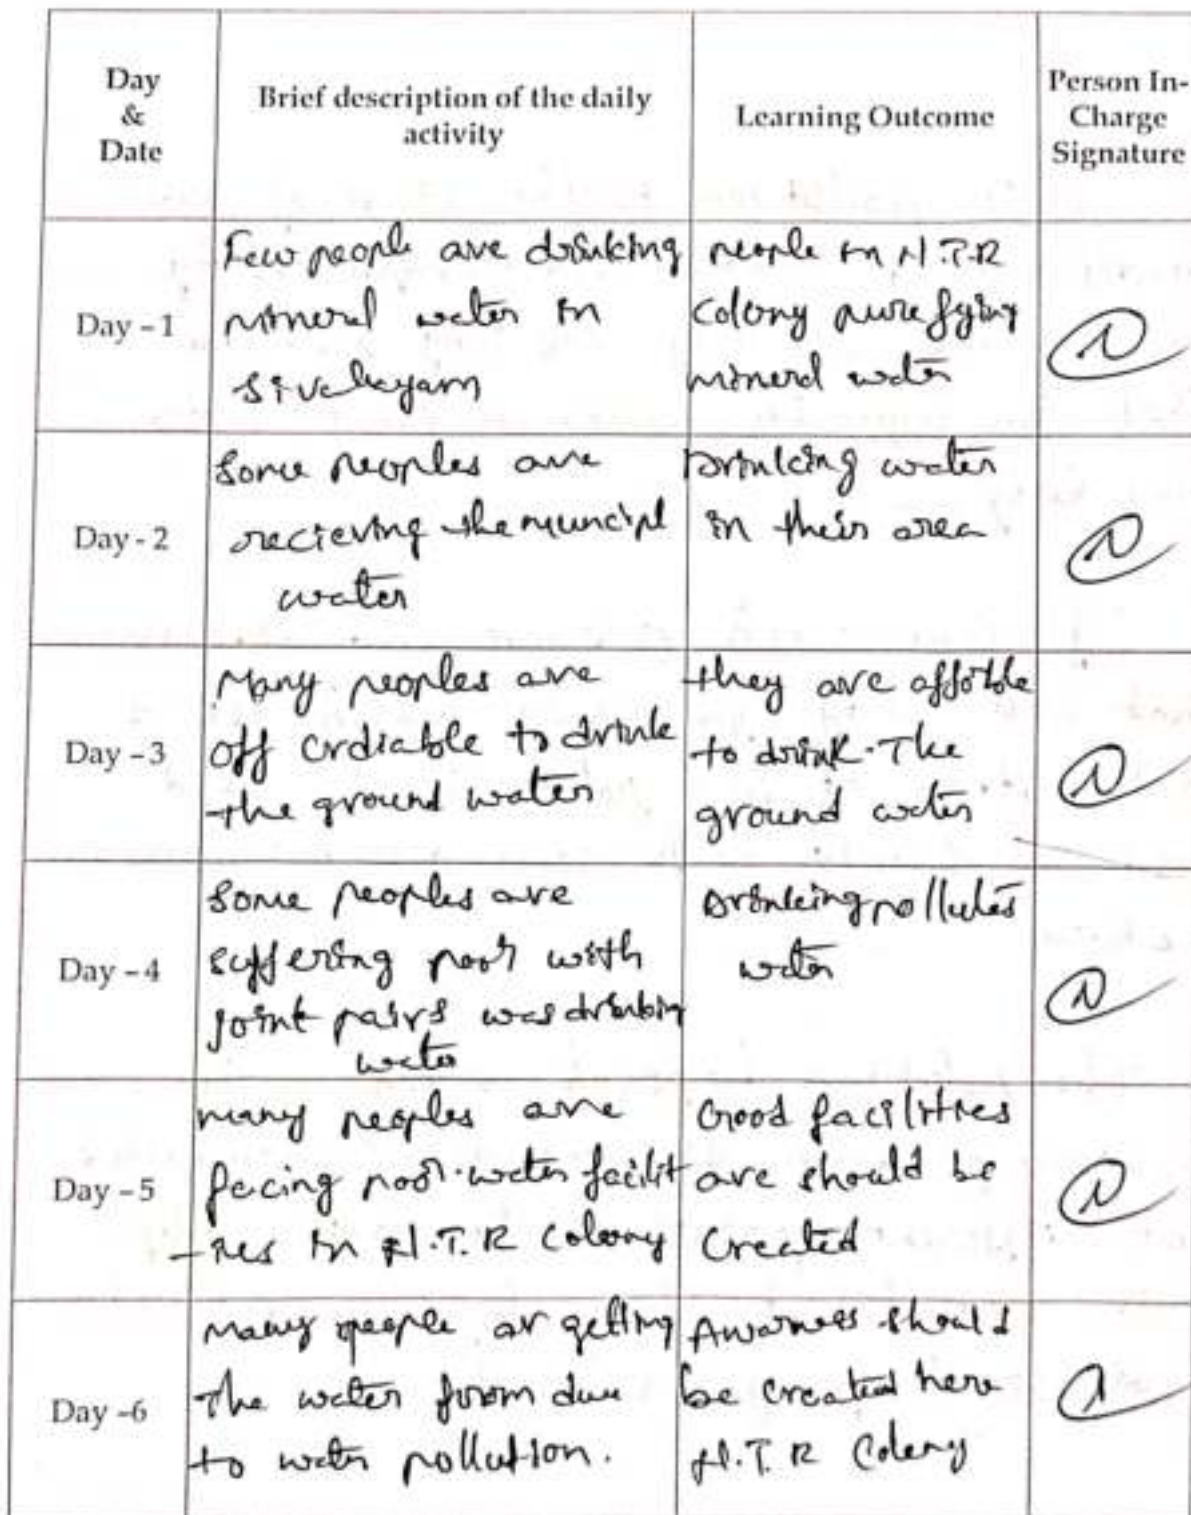 Day
&
Date
Brief description of the daily
activity
Learning Outcome
Person In-
Charge
Signature
Day - 1
Few people are drinking
mineral water in
people in N.T.R
Colony purefying
mineral water
Day - 2
Some peoples are
recieving the muncipl
water
Drinking water
in their area
Day - 3
Many peoples are
off crdiable to drink
the ground water
they are
to drink. The
ground water
Day - 4
Some peoples are
suffering poor with
joint pairs was drinking
water
Drinking pollutes
water
Day - 5
many peoples are
facing poor water facilit
-ies in N.T.R Colony
Good facilities
are should be
Created
Day -6
Many people ar getting
The water from due
to water pollution.
Awarness should
be created here
N.T.R Colony